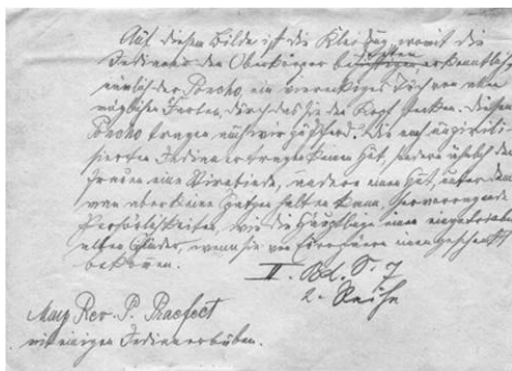 Auf diesem Bilde ist die Kleidung, womit die
Indianer den Oberkörper
nämlich der Poncho, ein viereckiges Tuch von allen
möglichen Farben, durch das sie den Kopf stecken. Diesen
Poncho tragen auch wir zu Pferd. Die noch unzivili-
sierten Indianer tragen keinen Hut, sondern ähnlich den
Frauen eine Stirnbinde, andere einen Hut, unter dem
man aber keinen halten kann, hervorragende
Persönlichkeiten, wie die Häuptlinge einen
alten Cylinder, wenn sie von geschenkt
bekommen.
II. Bd. S. 7
2. Reihe
Rev. P. Praefect
mit einigen Indianerbuben.